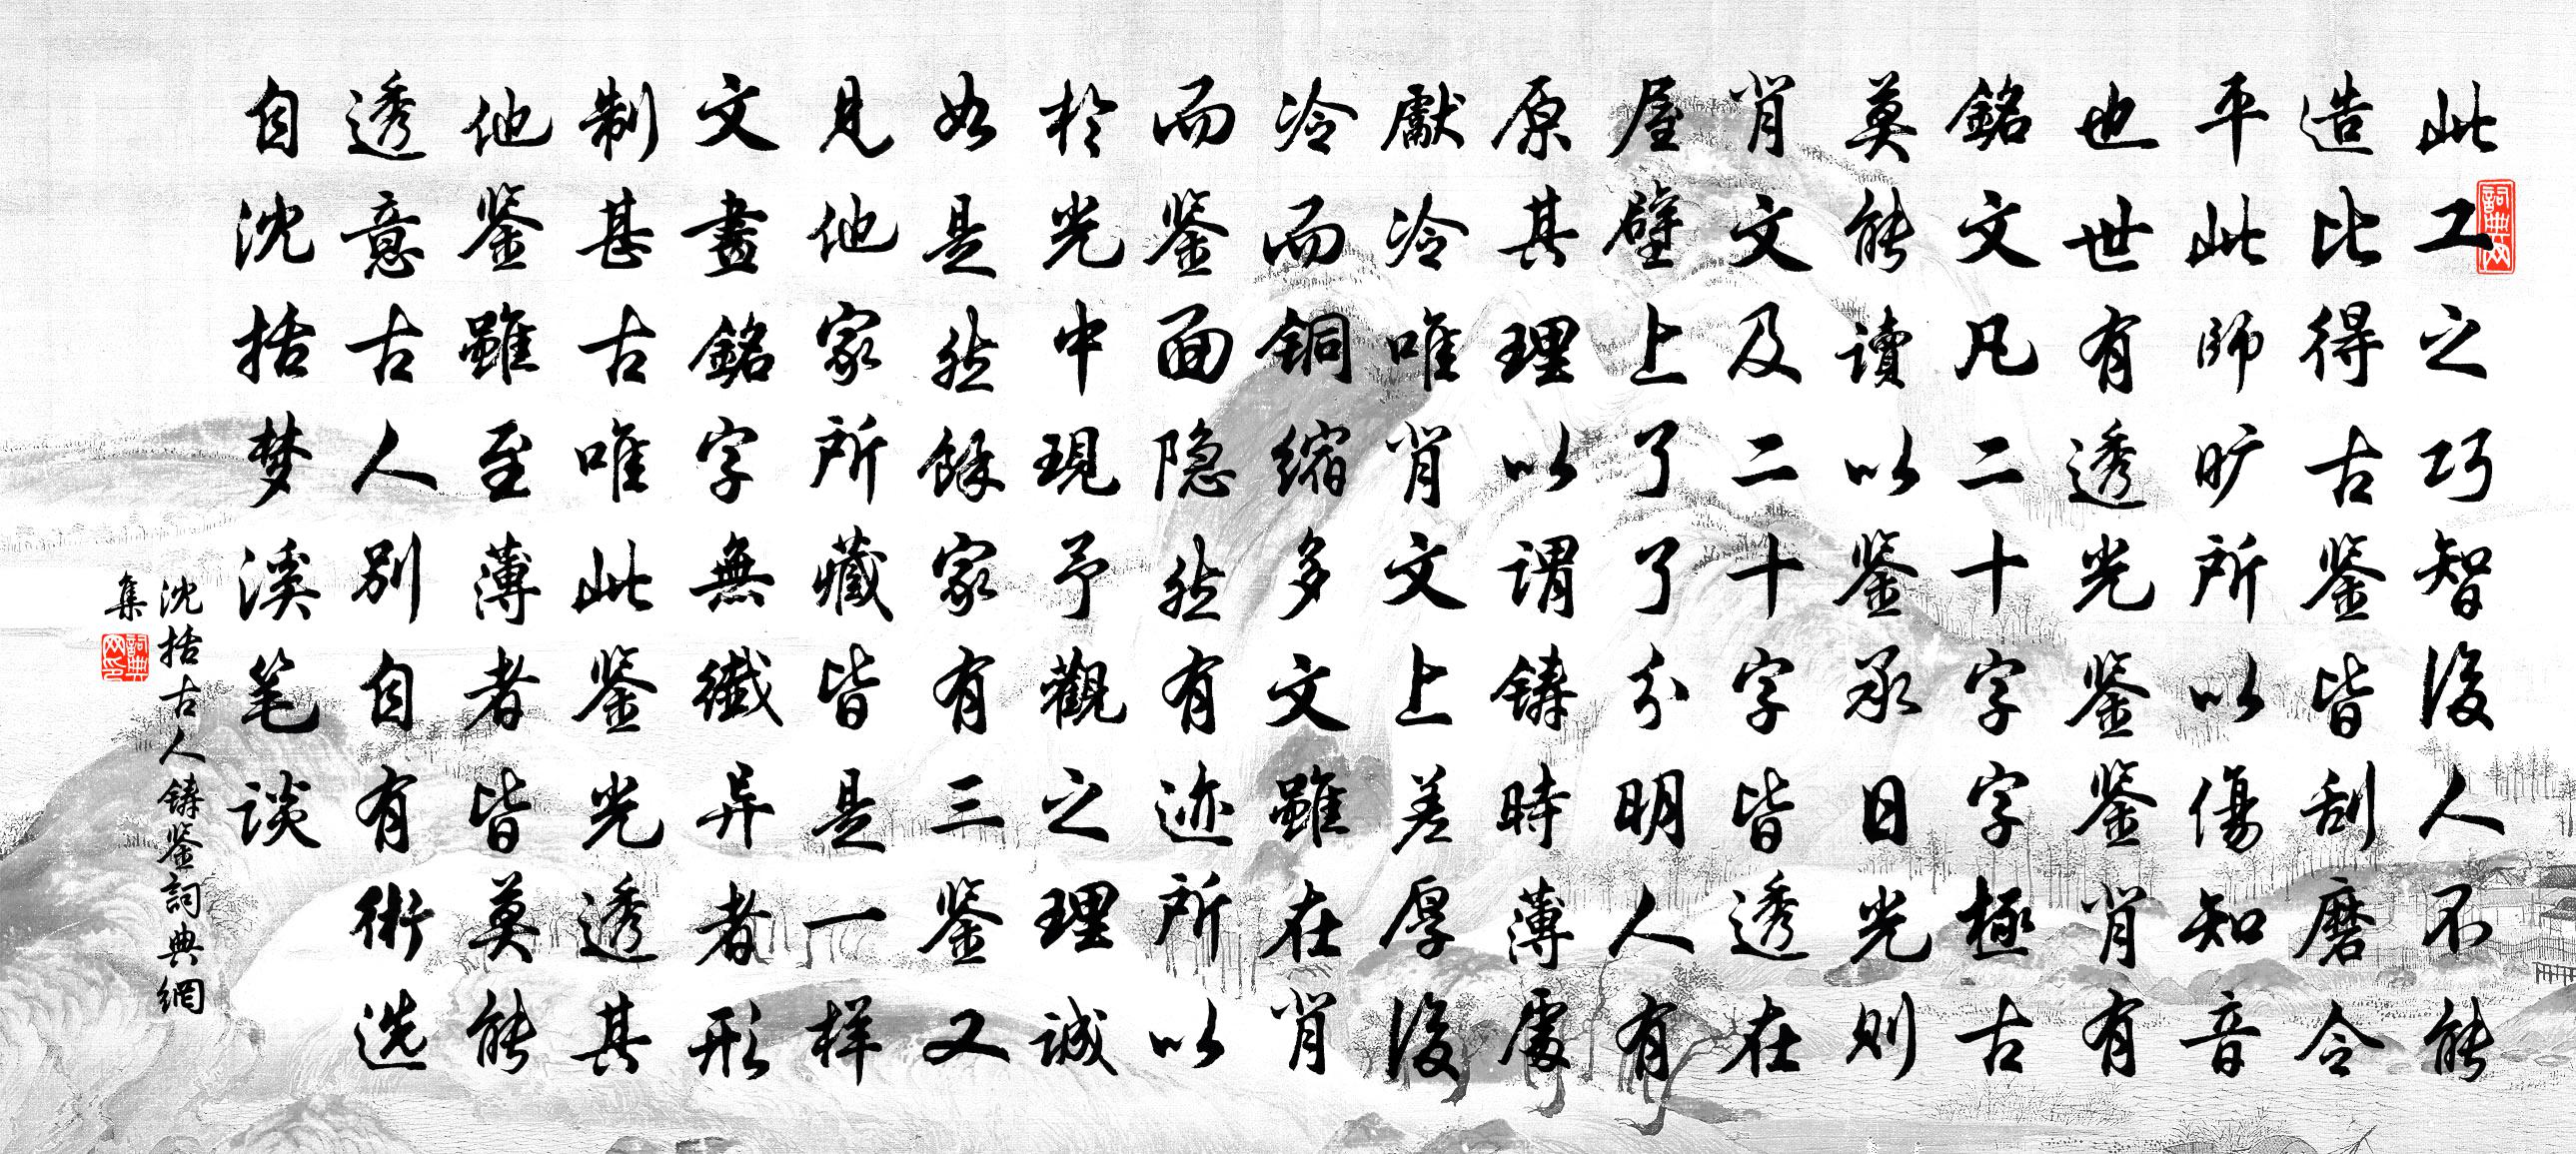 此工之巧智後人不能
造比得古鉴皆刮磨令
平此師旷所以傷知音
也世有透光鉴鉴肖有
銘文凡二十字字極古
莫能讀以鉴承日光则
肖文及二十字皆透在
屋壁上了了分明人有
原其理以謂铸時薄處
獻冷唯肖文上差厚後
冷而铜缩多文雖在肖
而鉴面隐然有迹所以
於光中現予觀之理诚
如是然餘家有三鉴又
見他家所藏皆是一样
文畫銘字無纖异者形
制甚古唯此鉴光透其
他鉴雖至薄者皆莫能
透意古人别自有術选
自沈括梦溪笔谈
沈括古人铸鉴詞典網
集
詞典网
詞典网印